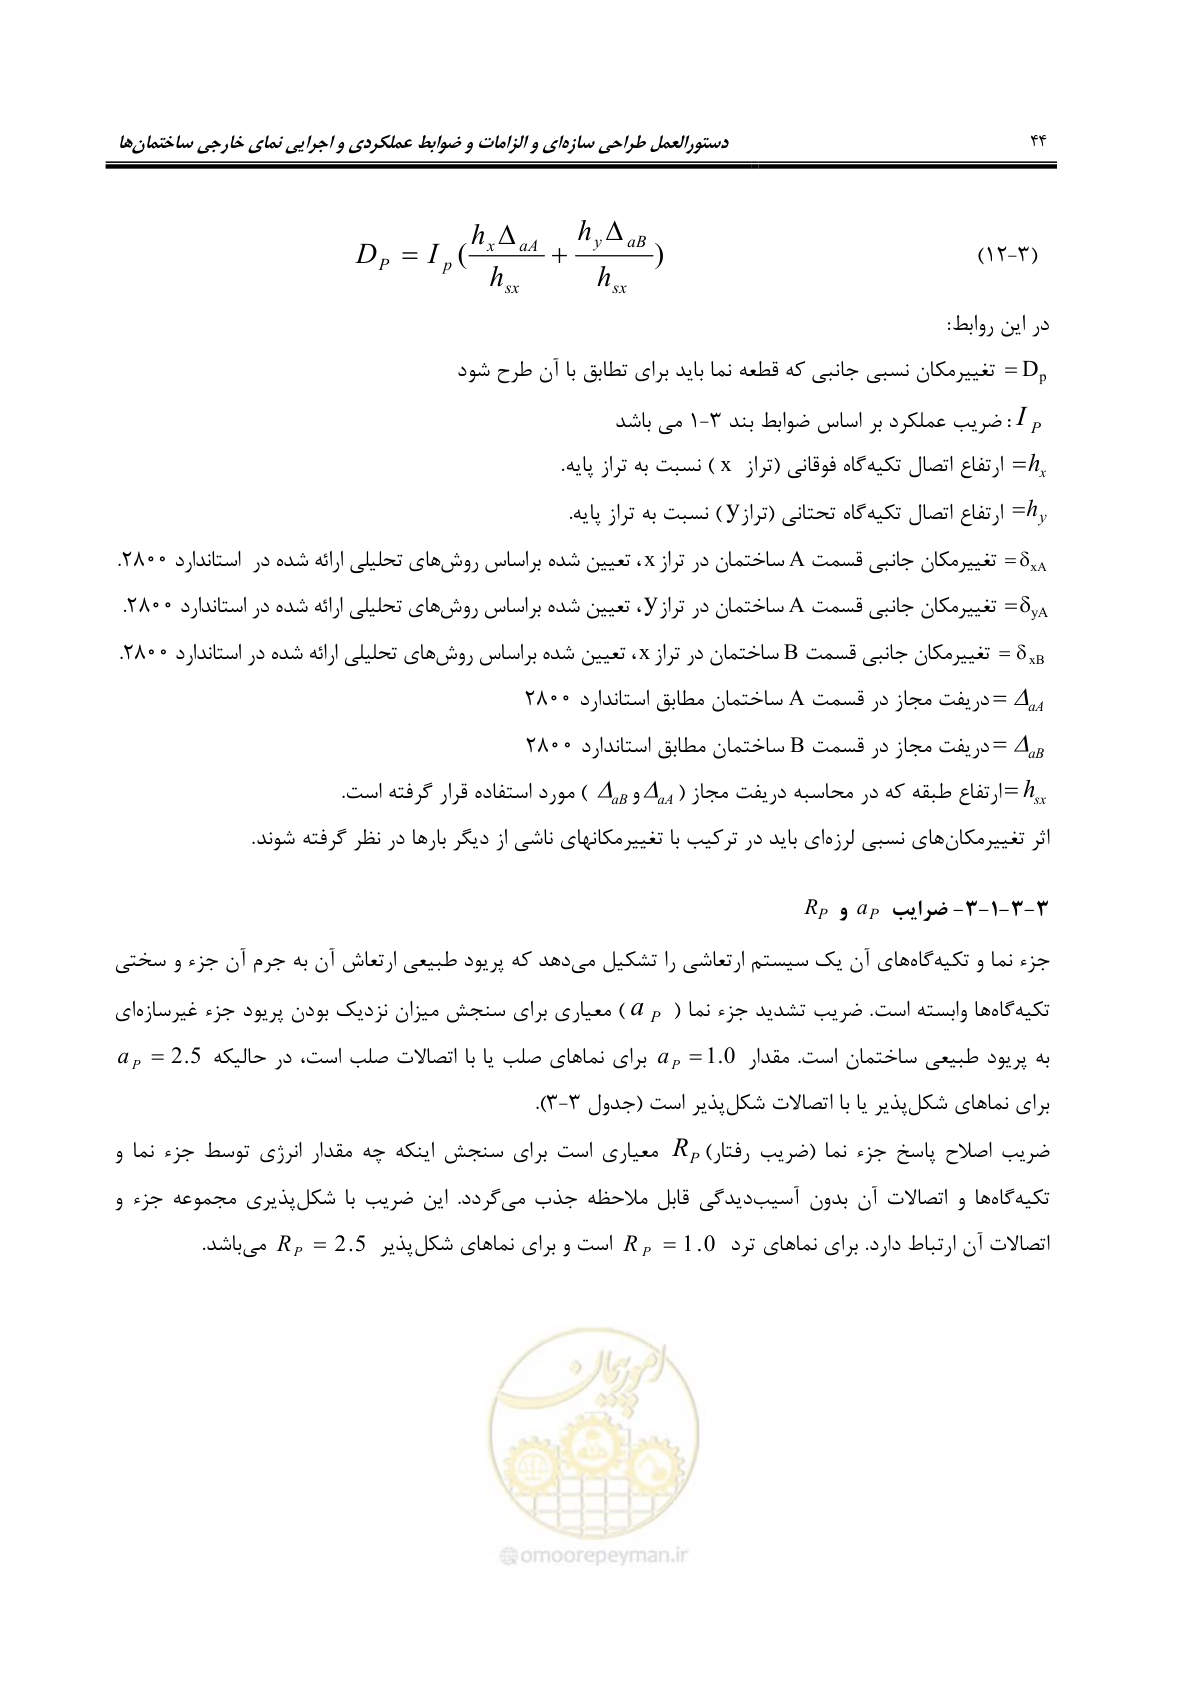 ۴۴ دستورالعمل طراحی سازه‌ای و الزامات و ضوابط عملکردی و اجرایی نمای خارجی ساختمان‌ها
(۳-۱۲) D_P = I_p (h_x Δ_aA / h_sx + h_y Δ_aB / h_sx)
در این روابط:
D_p = تغییرمکان نسبی جانبی که قطعه نما باید برای تطابق با آن طرح شود
I_P : ضریب عملکرد بر اساس ضوابط بند ۳-۱ می باشد
h_x= ارتفاع اتصال تکیه‌گاه فوقانی (تراز x ) نسبت به تراز پایه.
h_y= ارتفاع اتصال تکیه‌گاه تحتانی (تراز y) نسبت به تراز پایه.
δ_xA= تغییرمکان جانبی قسمت A ساختمان در تراز x، تعیین شده براساس روش‌های تحلیلی ارائه شده در استاندارد ۲۸۰۰.
δ_yA= تغییرمکان جانبی قسمت A ساختمان در تراز y، تعیین شده براساس روش‌های تحلیلی ارائه شده در استاندارد ۲۸۰۰.
δ_xB = تغییرمکان جانبی قسمت B ساختمان در تراز x، تعیین شده براساس روش‌های تحلیلی ارائه شده در استاندارد ۲۸۰۰.
Δ_aA =دریفت مجاز در قسمت A ساختمان مطابق استاندارد ۲۸۰۰
Δ_aB =دریفت مجاز در قسمت B ساختمان مطابق استاندارد ۲۸۰۰
h_sx =ارتفاع طبقه که در محاسبه دریفت مجاز ( Δ_aA و Δ_aB ) مورد استفاده قرار گرفته است.
اثر تغییرمکان‌های نسبی لرزه‌ای باید در ترکیب با تغییرمکانهای ناشی از دیگر بارها در نظر گرفته شوند.
۳-۳-۱-۳- ضرایب a_P و R_P
جزء نما و تکیه‌گاه‌های آن یک سیستم ارتعاشی را تشکیل می‌دهد که پریود طبیعی ارتعاش آن به جرم آن جزء و سختی
تکیه‌گاه‌ها وابسته است. ضریب تشدید جزء نما ( a_P ) معیاری برای سنجش میزان نزدیک بودن پریود جزء غیرسازه‌ای
به پریود طبیعی ساختمان است. مقدار a_P = 1.0 برای نماهای صلب یا با اتصالات صلب است، در حالیکه a_P = 2.5
برای نماهای شکل‌پذیر یا با اتصالات شکل‌پذیر است (جدول ۳-۳).
ضریب اصلاح پاسخ جزء نما (ضریب رفتار) R_P معیاری است برای سنجش اینکه چه مقدار انرژی توسط جزء نما و
تکیه‌گاه‌ها و اتصالات آن بدون آسیب‌دیدگی قابل ملاحظه جذب می‌گردد. این ضریب با شکل‌پذیری مجموعه جزء و
اتصالات آن ارتباط دارد. برای نماهای ترد R_P = 1.0 است و برای نماهای شکل‌پذیر R_P = 2.5 می‌باشد.
امور پیمان
@omoorepeyman.ir